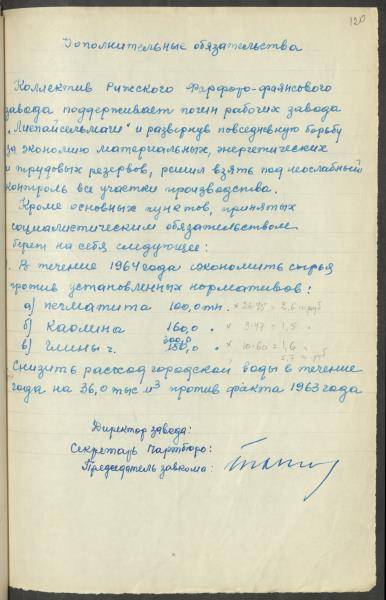 120
Дополнительные обязательства
Коллектив Рижского Фарфоро-фаянсового
завода поддерживает почин рабочих завода
"Лиепайсельмаш" и развернув повседневную борьбу
за экономию материальных, энергетических
и трудовых резервов, решил взять под неослабный
контроль все участки производства.
Кроме основных пунктов, принятых
социалистическим обязательством
берет на себя следующее:
1. В течение 1964 года сэкономить сырья
против установленных нормативов:
а) пегматита 100,0 тн. × 26-45 = 2,6 т.руб
б) Каолина 160,0 " × 9-47 = 1,5 "
200,0
в) Глины ч. 150,0 " × 10-60 = 1,6 "
5,7
Снизить расход городской воды в течение
года на 36,0 тыс м3 против факта 1963 года
Директор завода:
Секретарь Партбюро:
Председатель завкома: